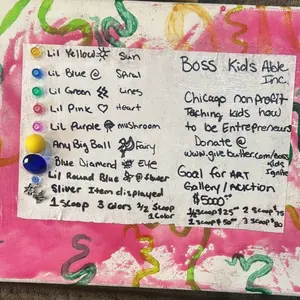 Lil Yellow Sun
Lil Blue @ Spiral
Lil Green Lines
Lil Pink Heart
Lil Purple mushroom
Any Big Ball Fairy
Blue Diamond Eye
Lil Round Blue flower
Sliver Item displayed
1 Scoop 3 colors 1/2 Scoop
1 Color
Boss Kids Able
Inc.
Chicago nonprofit
Teaching kids how
to be Entrepreneurs
Donate @
www.givebutter.com/boss
Kids
Ignite
Goal for ART
Gallery/Auction
$5000.00
1/2 Scoop $25.00 2 Scoop $75
1 Scoop $50.00 3 Scoop $80